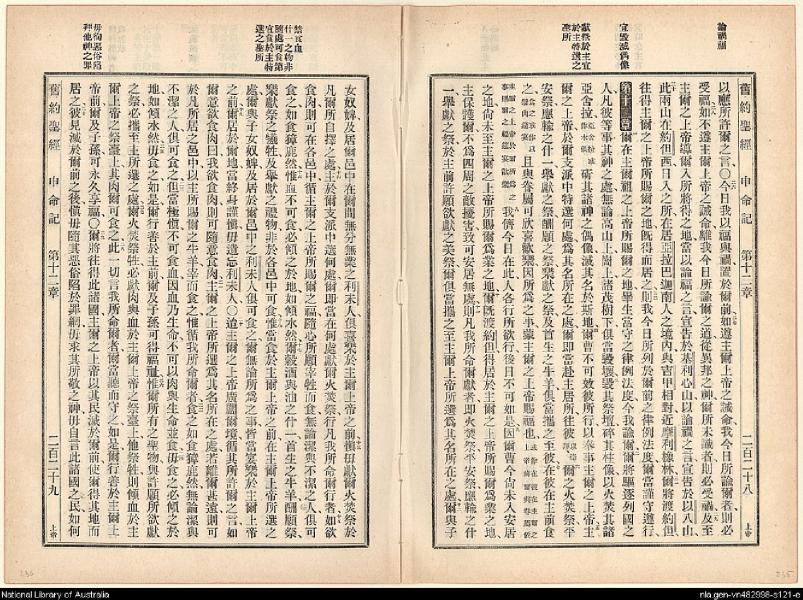 論禍福
宜毀滅偶像
獻祭於主宜
於主特選之
聖所
舊約聖經 申命記 第十二章 二百二十八 上帝
以應所許爾之言〇今日我以福與禍置於爾前如遵主爾上帝之誡命我今日所諭爾者則必
受福如不遵主爾上帝之誡命離我今日所諭爾之道從異邦之神爾所未識者則必受禍及至
主爾之上帝導爾入所將得之地當以諭福之言宣告於基利心山以諭禍之言宣告於以八山
此兩山在約但西日入之所在居亞拉巴迦南人之境內與吉甲相對近摩利橡林爾將渡約但
往得主爾上帝所賜爾之地既得而居之則我今日所列於爾前之律例法度爾當謹守遵行
第十二章爾在主爾祖之上帝所賜爾之地畢生當守之律例法度今我諭爾爾將驅逐列國之
人凡彼等事其神之處無論高山上崗上諸茂樹下俱當毀壞毀其祭壇碎其柱像以火焚其諸
亞舍拉 斫其諸神之偶像滅其名於斯地爾曹不可效彼所行以奉事主爾之上帝主
爾之上帝於爾支派中特選何處爲其名所在之處爾即當赴主居所往彼 爾之火焚祭平
安祭應輸之什一舉獻之祭酬願之祭樂獻之祭及首生之牛羊俱當攜之至彼在彼在主前食
且與眷屬可欣喜歡樂因所爲之事蒙主爾之上帝賜福也
我儕今日在此人各行所欲行後日不可如是因爾曹今尚未入安居
之地尚未至主爾之上帝所賜爾爲業之地爾既渡約但得居於主爾之上帝所賜爾爲業之地
主保護爾不爲四周之敵擾害致可安居無處則凡我所命爾獻者即火焚祭平安祭應輸之什
一舉獻之祭於主前許願欲獻之美祭爾俱當攜之至主爾上帝所選爲其名所在之處爾與子
禁食血
什一之物非
隨處可食第
宜食於主特
選之聖所
毋徇惡俗陷
拜他神之罪
女奴婢及居爾邑中在爾間無分無業之利未人俱喜樂於主爾上帝之前愼毋獻爾火焚祭於
凡爾所自擇之處主於爾支派中選何處爾即當在何處獻爾火焚祭行凡我所命爾行者如欲
食肉則可在各邑中循主爾之上帝所賜爾之福隨心所願宰牲而食無論潔與不潔之人俱可
食之如食獐鹿然惟血不可食必傾之於地如傾水然爾穀酒與油之什一首生之牛羊酬願祭
樂獻祭之犧牲及舉獻之禮物非於各邑中可食惟當食於主爾上帝之前在主爾上帝所選之
處爾與子女奴婢及居於爾邑中之利未人俱可食之爾無論所爲之事皆當宴樂於主爾上帝
之前爾居於爾地當終身謹愼毋遺忘利未人〇迨主爾之上帝廣闢爾境循其所許爾之言如
爾意欲食肉曰我欲食肉則可隨意食肉主爾之上帝所選爲其名所在之處若離爾甚遠則可
於爾所居之邑中以主所賜爾之牛羊宰而食之惟循我所命爾者食之如食獐鹿然無論潔與
不潔之人俱可食之但當極愼不可食血因血乃生命不可以肉與生命並食毋食之必傾之於
地如傾水然毋食之如是爾行善於主前爾及子孫可得福祉惟爾所有之聖物與許願所欲獻
之祭必攜至主所選之處爾火焚祭牲必獻肉與血於主爾上帝之祭臺上他祭牲則傾血於主
爾上帝之祭臺上其肉爾可食之凡此一切言我所命爾者爾當聽而守之如是爾行善於主爾上
帝前爾及子孫可永久享福〇爾將往得此諸國主爾之上帝以其民滅於爾前使爾得其地而
居之彼見滅於爾前之後愼毋隨其惡俗陷於罪網毋求其所敬之神毋自言此諸國之民如何
舊約聖經 申命記 第十二章 二百二十九 上帝
236
235
National Library of Australia
nla.gen-vn482998-s121-e